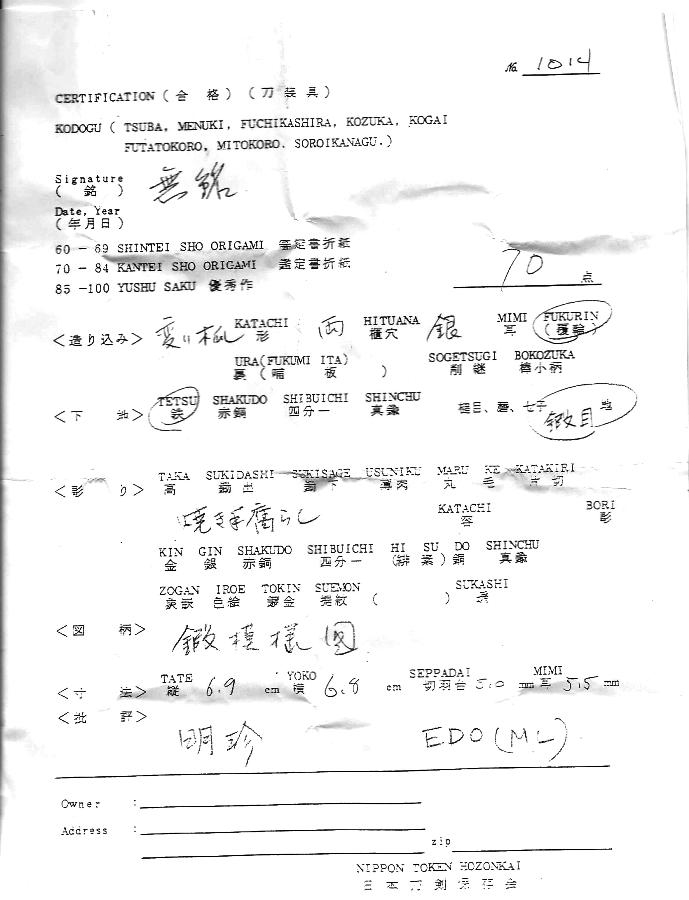 No. 1014
CERTIFICATION (合 格) (刀 装 具)
KODOGU ( TSUBA, MENUKI, FUCHIKASHIRA, KOZUKA, KOGAI
FUTATOKORO, MITOKORO. SOROIKANAGU.)
Signature 無銘
( 銘 )
Date, Year
(年月日)
60 - 69 SHINTEI SHO ORIGAMI 審定書折紙
70 - 84 KANTEI SHO ORIGAMI 鑑定書折紙 70 点
85 -100 YUSHU SAKU 優秀作
KATACHI HITUANA MIMI FUKURIN
<造り込み> 変り 形 両 櫃穴 銀 耳 (覆輪)
URA(FUKUMI ITA) SOGETSUGI BOKOZUKA
裏 (哺 板 ) 削継 棒小柄
TETSU SHAKUDO SHIBUICHI SHINCHU
<下 地> 鉄 赤銅 四分一 真鍮 槌目、磨、七子 地
TAKA SUKIDASHI SUKISAGE USUNIKU MARU KE KATAKIRI
<彫 り> 高 鋤出 鋤下 薄肉 丸 毛 片切
焼き手腐らし KATACHI BORI
容 彫
KIN GIN SHAKUDO SHIBUICHI HI SU DO SHINCHU
金 銀 赤銅 四分一 (緋 素) 銅 真鍮
ZOGAN IROE TOKIN SUEMON SUKASHI
象嵌 色絵 鍍金 据紋 ( ) 透
<図 柄> 模様 図
TATE YOKO SEPPADAI MIMI
<寸 法> 縦 6.9 cm 横 6.8 cm 切羽台 5.0 mm 耳 5.5 mm
<批 評>
明珍 EDO (ML)
Owner :
Address :
zip
NIPPON TOKEN HOZONKAI
日 本 刀 剣 保 存 会